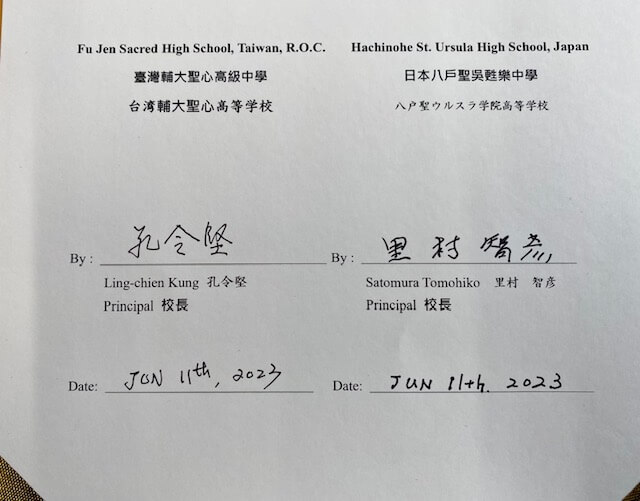 Fu Jen Sacred High School, Taiwan, R.O.C.
臺灣輔大聖心高級中學
台湾輔大聖心高等学校
Hachinohe St. Ursula High School, Japan
日本八戶聖吳甦樂中學
八戸聖ウルスラ学院高等学校
By : 孔令堅
Ling-chien Kung 孔令堅
Principal 校長
Date: JUN 11th, 2023
By : 里村智彦
Satomura Tomohiko 里村 智彦
Principal 校長
Date: JUN 11th. 2023